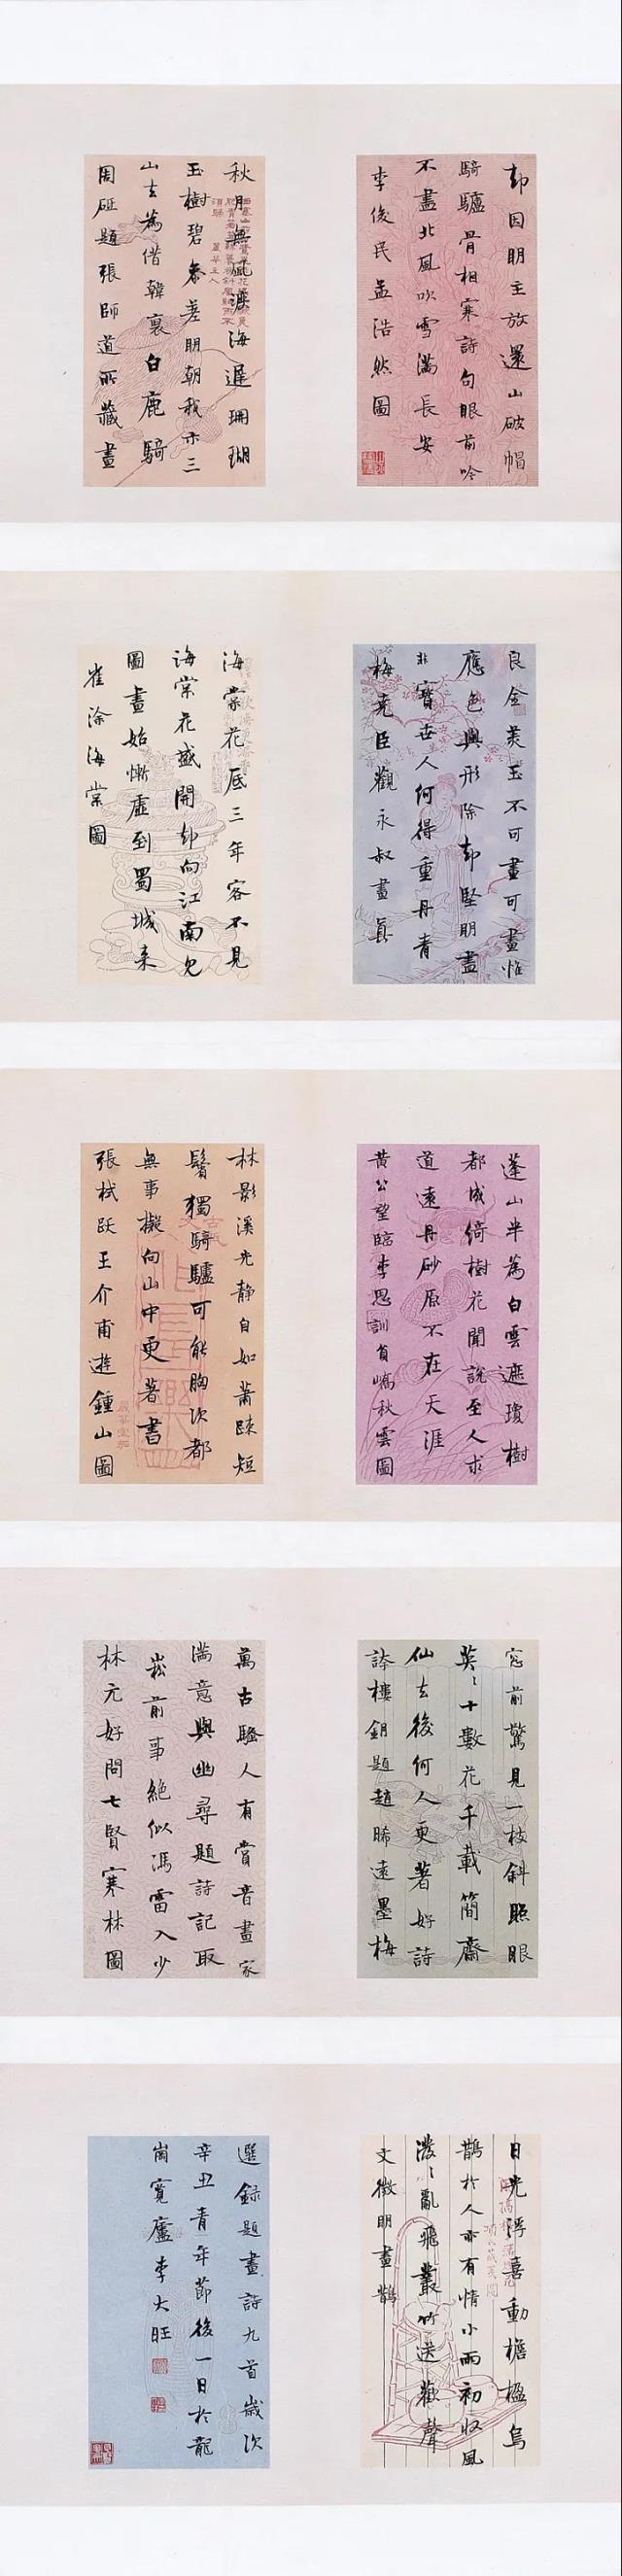 却因明主放還山破帽
騎驢骨相寒詩句眼前吟
不盡北風吹雪滿長安
李俊民孟浩然圖
秋月無風漲海遲珊瑚
玉樹碧參差明朝我亦三
山去為借韓襄白鹿騎
周砥題張師道所藏畫
良金美玉不可畫可畫惟
應色與形除却堅明盡
非寶世人何得重丹青
梅堯臣觀永叔畫真
海棠花底三年客不見
海棠花盛開却向江南見
圖畫始慚虛到蜀城來
崔涂海棠圖
蓬山半為白雲遮瓊樹
都成綺樹花聞說至人求
道遠丹砂原不在天涯
黃公望臨李思訓員嶠秋雲圖
林影溪光静自如蕭踈短
鬢獨騎驢可能胸次都
無事擬向山中更著書
張栻跋王介甫遊鍾山圖
窓前驚見一枝斜照眼
英英十數花千載簡齋
仙去後何人更著好詩
誇樓鑰題趙晞遠墨梅
萬古騷人有賞音畫家
滿意與幽尋題詩記取
崧前事絕似馮雷入少
林元好問七賢寒林圖
日光浮喜動檐楹烏
鵲於人亦有情小雨初收風
潑潑亂飛叢竹送歡聲
文徵明畫鵲
選録題畫詩九首歲次
辛丑青年節後一日於龍
崗寬廬李大旺